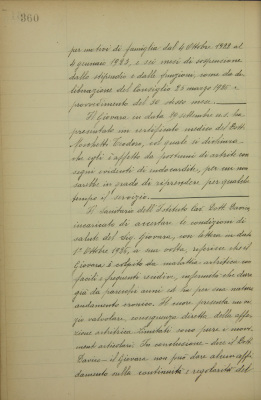 360
per motivi di famiglia dal 4 Ottobre 1922 al
4 gennaio 1923, e sei mesi di sospensione
dallo stipendio e dalle funzioni, come da de-
liberazione del Consiglio 25 marzo 1925 e
provvedimento del 30 stesso mese.
Il Giovara in data 19 settembre u.s. ha
presentato un certificato medico del Dott.
Teodoro, col quale si dichiara
che egli è affetto da postumi di artrite con
segni evidenti di endocardite, per cui non
sarebbe in grado di riprendere per qualche
tempo il servizio.
Il Sanitario dell'Istituto Cav. Dott.
incaricato di accertare le condizioni di
salute del Sig. Giovara, con lettera in data
1° Ottobre 1925, a sua volta, riferisce che il
Giovara è colpito da malattia artritica con
facili e frequenti recidive, infermità che dura
già da parecchi anni ed ha per sua natura
andamento cronico. Al cuore presenta un vi-
zio valvolare, conseguenza diretta della affe-
zione artritica. Limitati sono pure i movi-
menti articolari. In conclusione - dice il Dott.
- il Giovara non può dare alcun affi-
damento sulla continuità e regolarità del